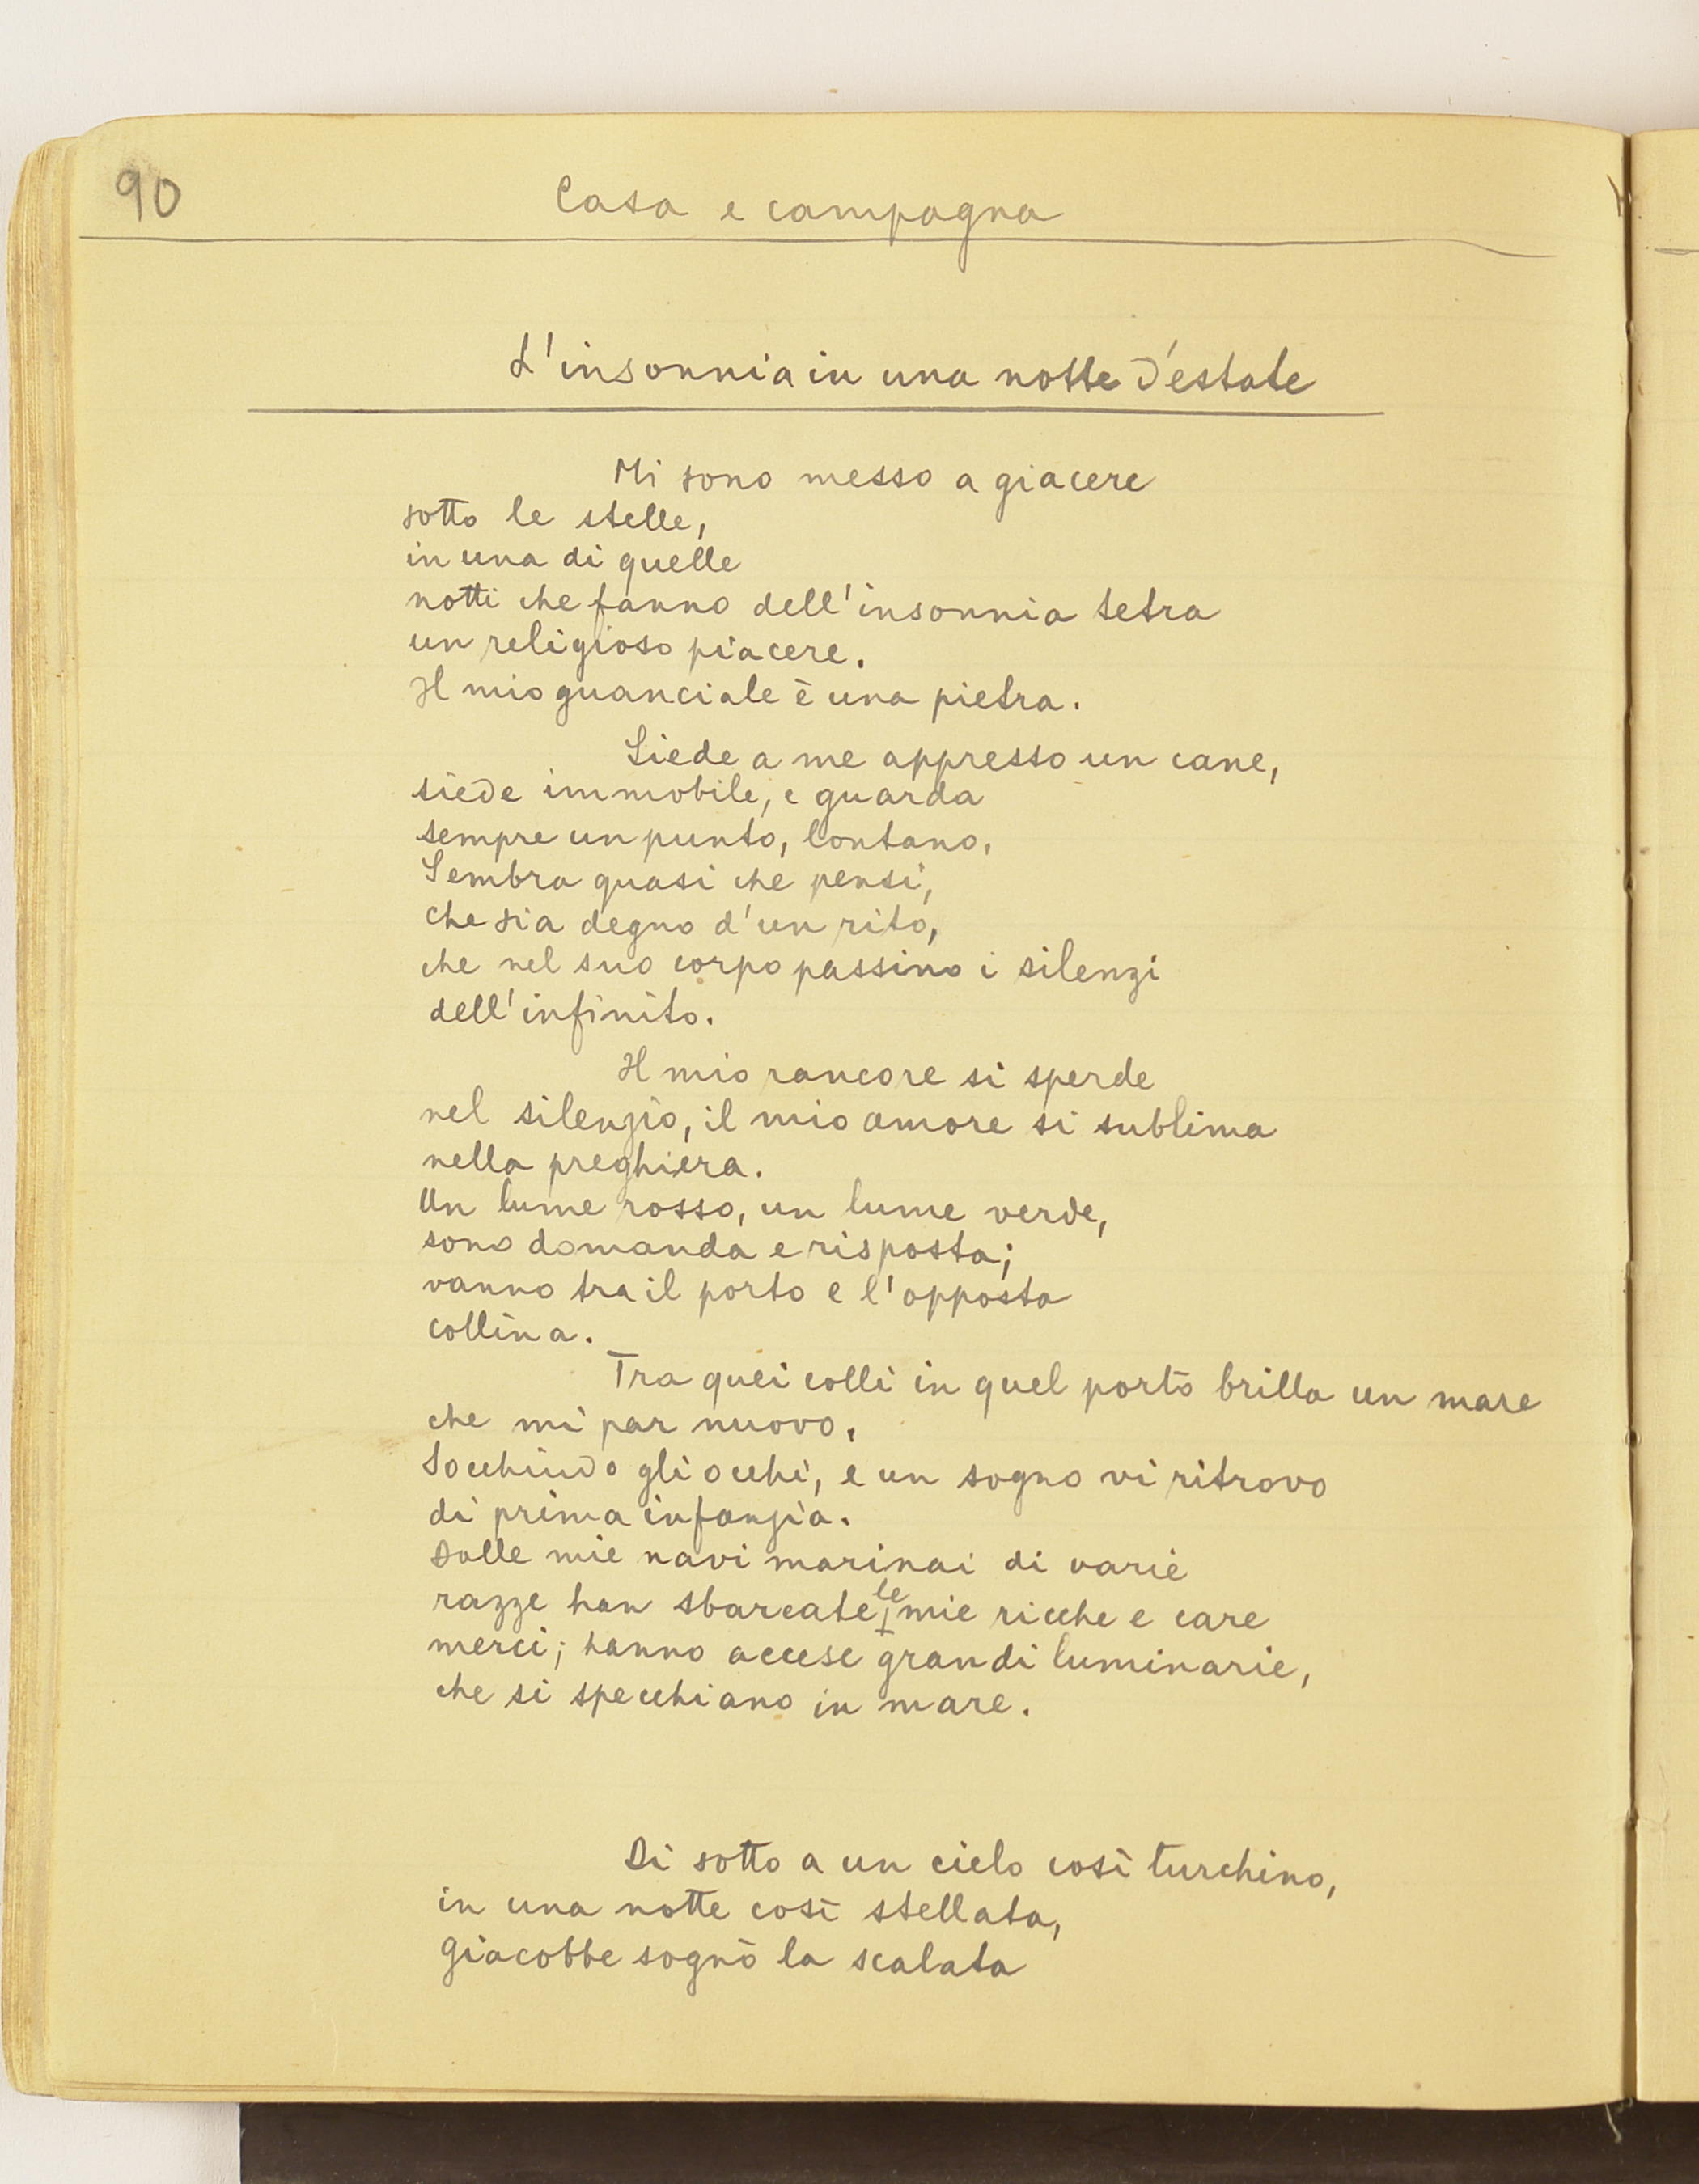 90
Casa e campagna
L'insonnia in una notte d'estate
Mi sono messo a giacere
sotto le stelle,
in una di quelle
notti che fanno dell'insonnia tetra
un religioso piacere.
Il mio guanciale è una pietra.
Siede a me appresso un cane,
siede immobile, e guarda
sempre un punto, lontano.
Sembra quasi che pensi,
che sia degno d'un rito,
che nel suo corpo passino i silenzi
dell'infinito.
Il mio rancore si sperde
nel silenzio, il mio amore si sublima
nella preghiera.
Un lume rosso, un lume verde,
sono domanda e risposta;
vanno tra il porto e l'opposta
collina.
Tra quei colli in quel porto brilla un mare
che mi par nuovo.
Socchiudo gli occhi, e un sogno vi ritrovo
di prima infanzia.
Dalle mie navi marinai di varie
razze han sbarcate le mie ricche e care
merci; hanno accese grandi luminarie,
che si specchiano in mare.
Di sotto a un cielo così turchino,
in una notte così stellata,
Giacobbe sognò la scalata